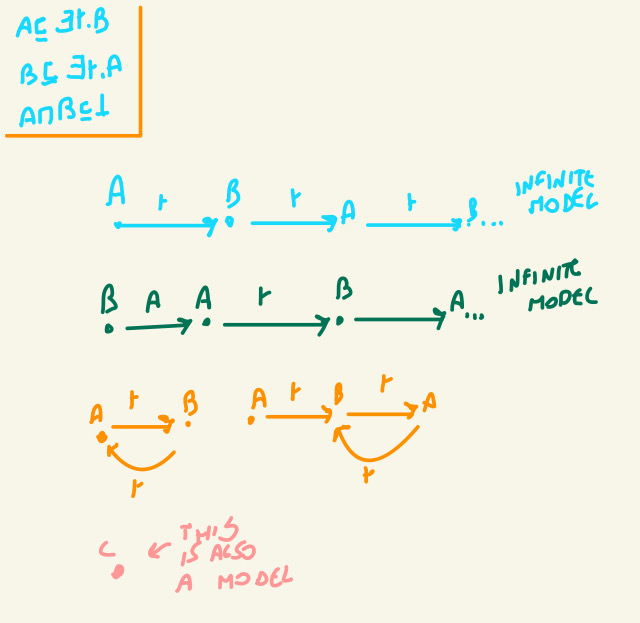 A ⊑ ∃r.B
B ⊑ ∃r.A
A ⊓ B ⊑ ⊥
A r B r A r B... INFINITE MODEL
B A A r B A... INFINITE MODEL
A r B r
A r B r A r
C THIS
IS ALSO
A MODEL